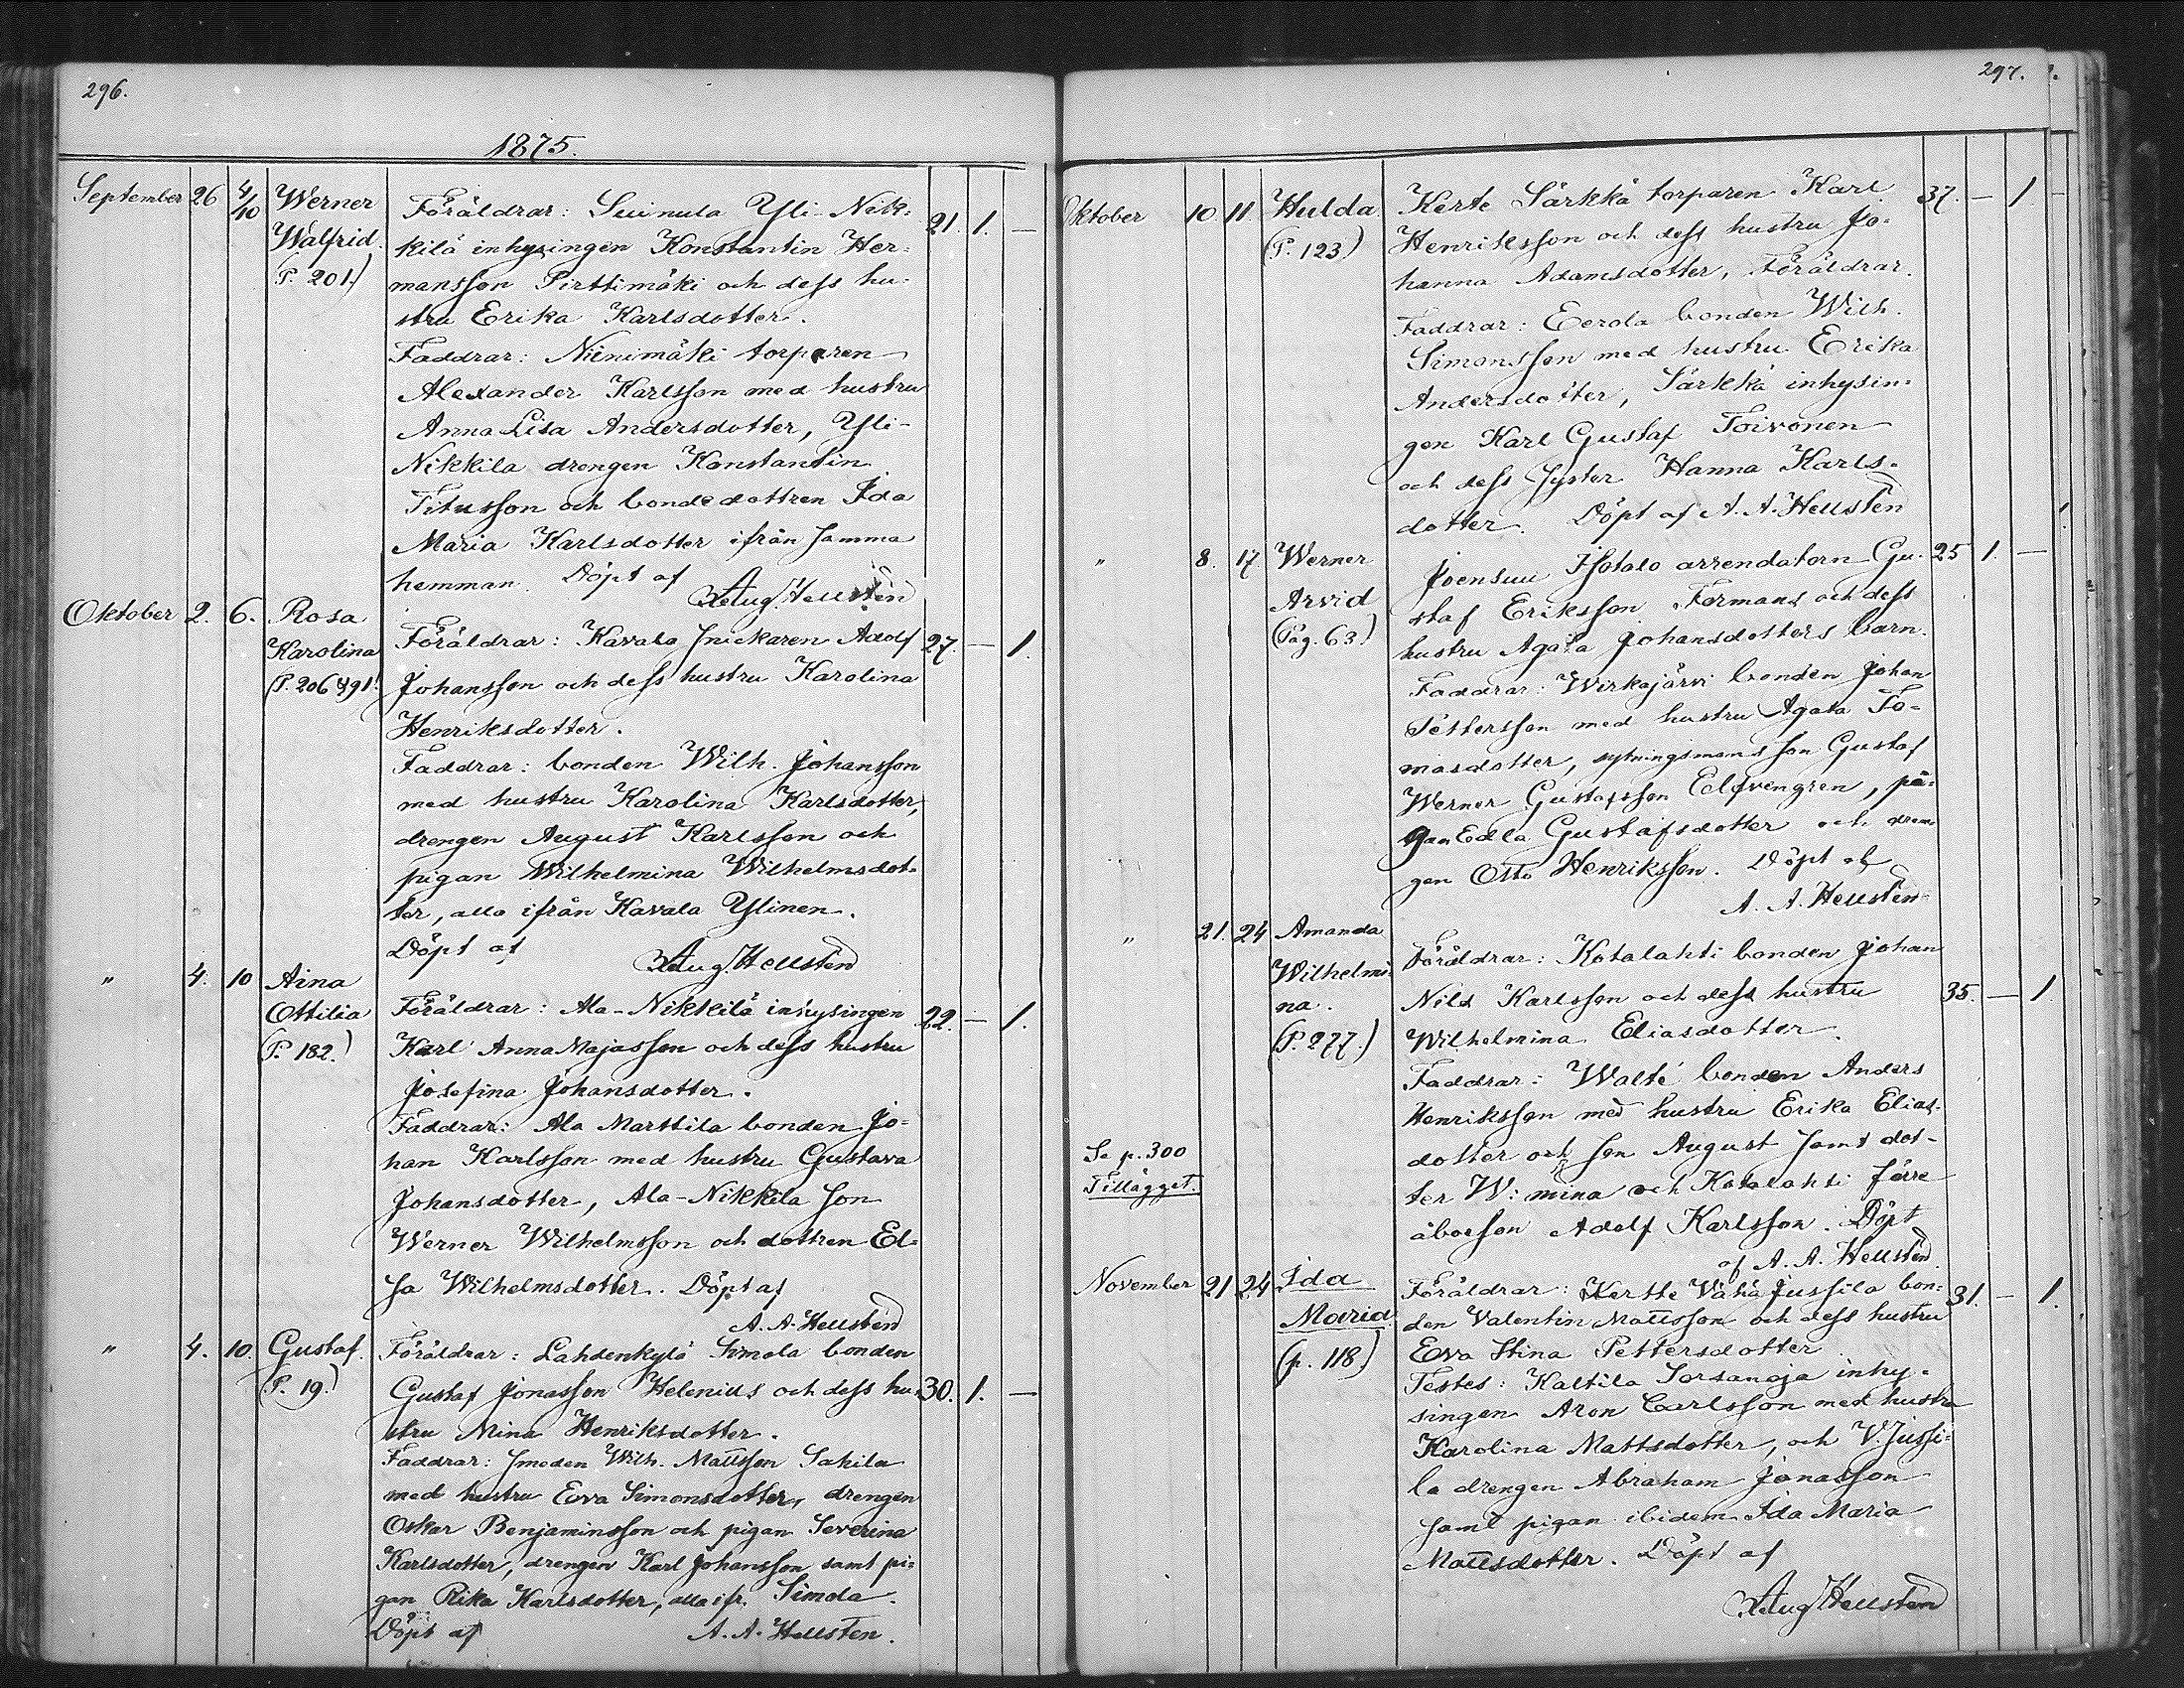 296.
1875.
September 26 4/10 Werner
Walfrid.
(P. 201.)
Föräldrar: Suinula Yli-Nik-
kilä inhysingen Konstantin Her-
mansson Pirttimäki och dess hu-
stru Erika Karlsdotter.
21. 1. —
Faddrar: Niinimäki torparen
Alexander Karlsson med hustru
Anna Lisa Andersdotter, Yli-
Nikkila drengen Konstantin
Titusson och bondedottren Ida
Maria Karlsdotter ifrån samma
hemman. Döpt af
Aug. Hellstén
Oktober 2. 6. Rosa
Karolina
(P. 206 & 91.)
Föräldrar: Kavala snickaren Adolf
Johansson och dess hustru Karolina
Henriksdotter.
27. — 1.
Faddrar: bonden Wilh. Johansson
med hustru Karolina Karlsdotter,
drengen August Karlsson och
pigan Wilhelmina Wilhelmsdot-
ter, alla ifrån Kavala Ylinen.
Döpt af
Aug. Hellstén
" 4. 10 Aina
Ottilia
(P. 182.)
Föräldrar: Ala-Nikkilä inhysingen
Karl AnnaMajasson och dess hustru
Josefina Johansdotter.
22. — 1.
Faddrar: Ala Marttila bonden Jo-
han Karlsson med hustru Gustava
Johansdotter, Ala-Nikkila son
Werner Wilhelmsson och dottren El-
sa Wilhelmsdotter. Döpt af
A. A. Hellstén
" 4. 10. Gustaf.
(P. 19.)
Föräldrar: Lahdenkylä Simola bonden
Gustaf Jonasson Helenius och dess hu-
stru Mina Henriksdotter.
30. 1. —
Faddrar: smeden Wilh. Mattsson Sakila
med hustru Eva Simonsdotter, drengen
Oskar Benjaminsson och pigan Severina
Karlsdotter, drengen Karl Johansson samt pi-
gan Rika Karlsdotter, alla ifr. Simola.
Döpt af A. A. Hellsten.
297.
Oktober 10. 11. Hulda.
(P. 123)
Kerte Särkkä torparen Karl
Henriksson och dess hustru Jo-
hanna Adamsdotter, Föräldrar.
37. — 1. —
Faddrar: Eerola bonden Wilh.
Simonsson med hustru Erika
Andersdotter, Särkkä inhysin-
gen Karl Gustaf Toivonen
och dess syster Hanna Karls-
dotter. Döpt af A. A. Hellstén
" 8. 17. Werner
Arvid
(Pag. 63.)
Joensuu Isotalo arrendatorn Gu-
staf Eriksson Formans och dess
hustru Agata Johansdotters barn.
25 1. —
Faddrar: Wirkajärvi bonden Johan
Pettersson med hustru Agata To-
masdotter, sytningsmans son Gustaf
Werner Gustafsson Elfvengren, pi-
gan Edla Gustafsdotter och dren-
gen Otto Henriksson. Döpt af
A. A. Hellstén
" 21. 24 Amanda
Wilhelmi-
na.
(P. 277.)
Föräldrar: Kotalahti bonden Johan
Nils Karlsson och dess hustru
Wilhelmina Eliasdotter.
35. — 1.
Faddrar: Walté bonden Anders
Henriksson med hustru Erika Elias-
dotter och son August samt dot-
ter W:mina och Kotalahti förre
åboeson Adolf Karlsson. Döpt
af A. A. Hellstén.
Se p. 300
Tillägget.
November 21 24 Ida
Maria
(p. 118.)
Föräldrar: Kertte Wähä Jussila bon-
den Valentin Mattsson och dess hustru
Eva Stina Pettersdotter.
31. — 1.
Testes: Kaltila Sorsanoja inhy-
singen Aron Carlsson med hustru
Karolina Mattsdotter, och V Jussi-
la drengen Abraham Jonasson
samt pigan ibidem Ida Maria
Mattsdotter. Döpt af
Aug Hellsten